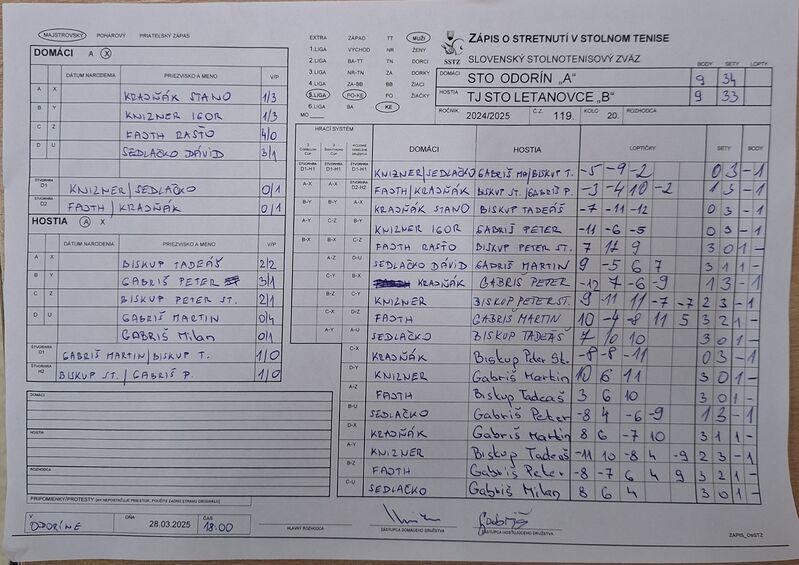 MAJSTROVSKÝ POHÁROVÝ PRIATEĽSKÝ ZÁPAS
DOMÁCI A X
DÁTUM NARODENIA PRIEZVISKO A MENO V/P
A X KRAJŇÁK STANO 1/3
B Y KNIZNER IGOR 1/3
C Z FAJTH RAŠŤO 4/0
D U SEDLAČKO DÁVID 3/1
ŠTVORHRA D1 KNIZNER/SEDLAČKO 0/1
ŠTVORHRA D2 FAJTH/KRAJŇÁK 0/1
HOSTIA A X
DÁTUM NARODENIA PRIEZVISKO A MENO V/P
A X BISKUP TADEÁŠ 2/2
B Y GABRIŠ PETER 3/1
C Z BISKUP PETER ST. 2/1
D U GABRIŠ MARTIN 0/4
GABRIŠ Milan 0/1
ŠTVORHRA GABRIŠ MARTIN/BISKUP T. 1/0
ŠTVORHRA H2 BISKUP ST./GABRIŠ P. 1/0
DOMÁCI
HOSTIA
ROZHODCA
PRIPOMIENKY/PROTESTY
V ODORÍNE DŇA 28.03.2025 ČAS 18:00
EXTRA ZÁPAD TT MUŽI
1.LIGA VÝCHOD NR ŽENY
2.LIGA BA-TT TN DORCI
3.LIGA NR-TN ZA DORKY
4.LIGA ZA-BB BB ŽIACI
5.LIGA PO-KE PO ŽIAČKY
6.LIGA BA KE
MO
SSTZ
ZÁPIS O STRETNUTÍ V STOLNOM TENISE
SLOVENSKÝ STOLNOTENISOVÝ ZVÄZ
BODY SETY LOPTY
DOMÁCI STO ODORÍN „A" 9 34
HOSTIA TJ STO LETANOVCE „B" 9 33
ROČNÍK 2024/2025 Č.Z. 119. KOLO 20. ROZHODCA
HRACÍ SYSTÉM DOMÁCI HOSTIA LOPTIČKY SETY BODY
KNIZNER/SEDLAČKO GABRIŠ MA/BISKUP T. -5 -9 -2 0 3 -1
FAJTH/KRAJŇÁK BISKUP ST./GABRIŠ P. -3 -4 10 -2 1 3 -1
KRAJŇÁK STANO BISKUP TADEÁŠ -7 -11 -12 0 3 -1
KNIZNER IGOR GABRIŠ PETER -11 -6 -5 0 3 -1
FAJTH RAŠŤO BISKUP PETER ST. 7 9 3 0 1 -
SEDLAČKO DÁVID GABRIŠ MARTIN 9 -5 6 7 3 1 1 -
KRAJŇÁK GABRIŠ PETER -12 7 -6 -9 1 3 -1
KNIZNER BISKUP PETER ST. 9 -11 11 -7 -7 2 3 -1
FAJTH GABRIŠ MARTIN 10 -4 -8 11 5 3 2 1 -
SEDLAČKO BISKUP TADEÁŠ 7 10 10 3 0 1 -
KRAJŇÁK Biskup Peter St. -8 -8 -11 0 3 -1
KNIZNER Gabriš Martin 10 6 11 3 0 1 -
FAJTH Biskup Tadeáš 3 6 10 3 0 1 -
SEDLAČKO Gabriš Peter -8 4 -6 -9 1 3 -1
KRAJŇÁK Gabriš Martin 8 6 -7 10 3 1 1 -
KNIZNER Biskup Tadeáš -11 10 -8 4 -9 2 3 -1
FAJTH Gabriš Peter -8 -7 6 4 9 3 2 1 -
SEDLAČKO Gabriš Milan 8 6 4 3 0 1 -
HLAVNÝ ROZHODCA
ZÁSTUPCA DOMÁCEHO DRUŽSTVA
Gabriš
ZÁSTUPCA HOSŤUJÚCEHO DRUŽSTVA
ZAPIS_OsSTZ